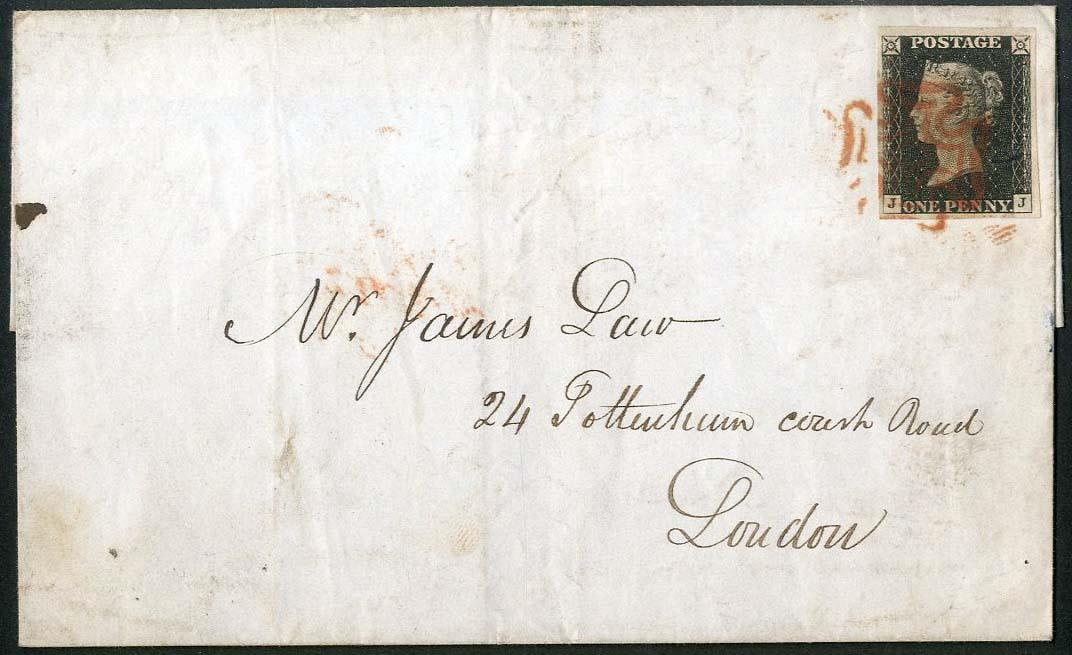 POSTAGE
J ONE PENNY. J
Mr. James Law
24 Tottenham court Road
London